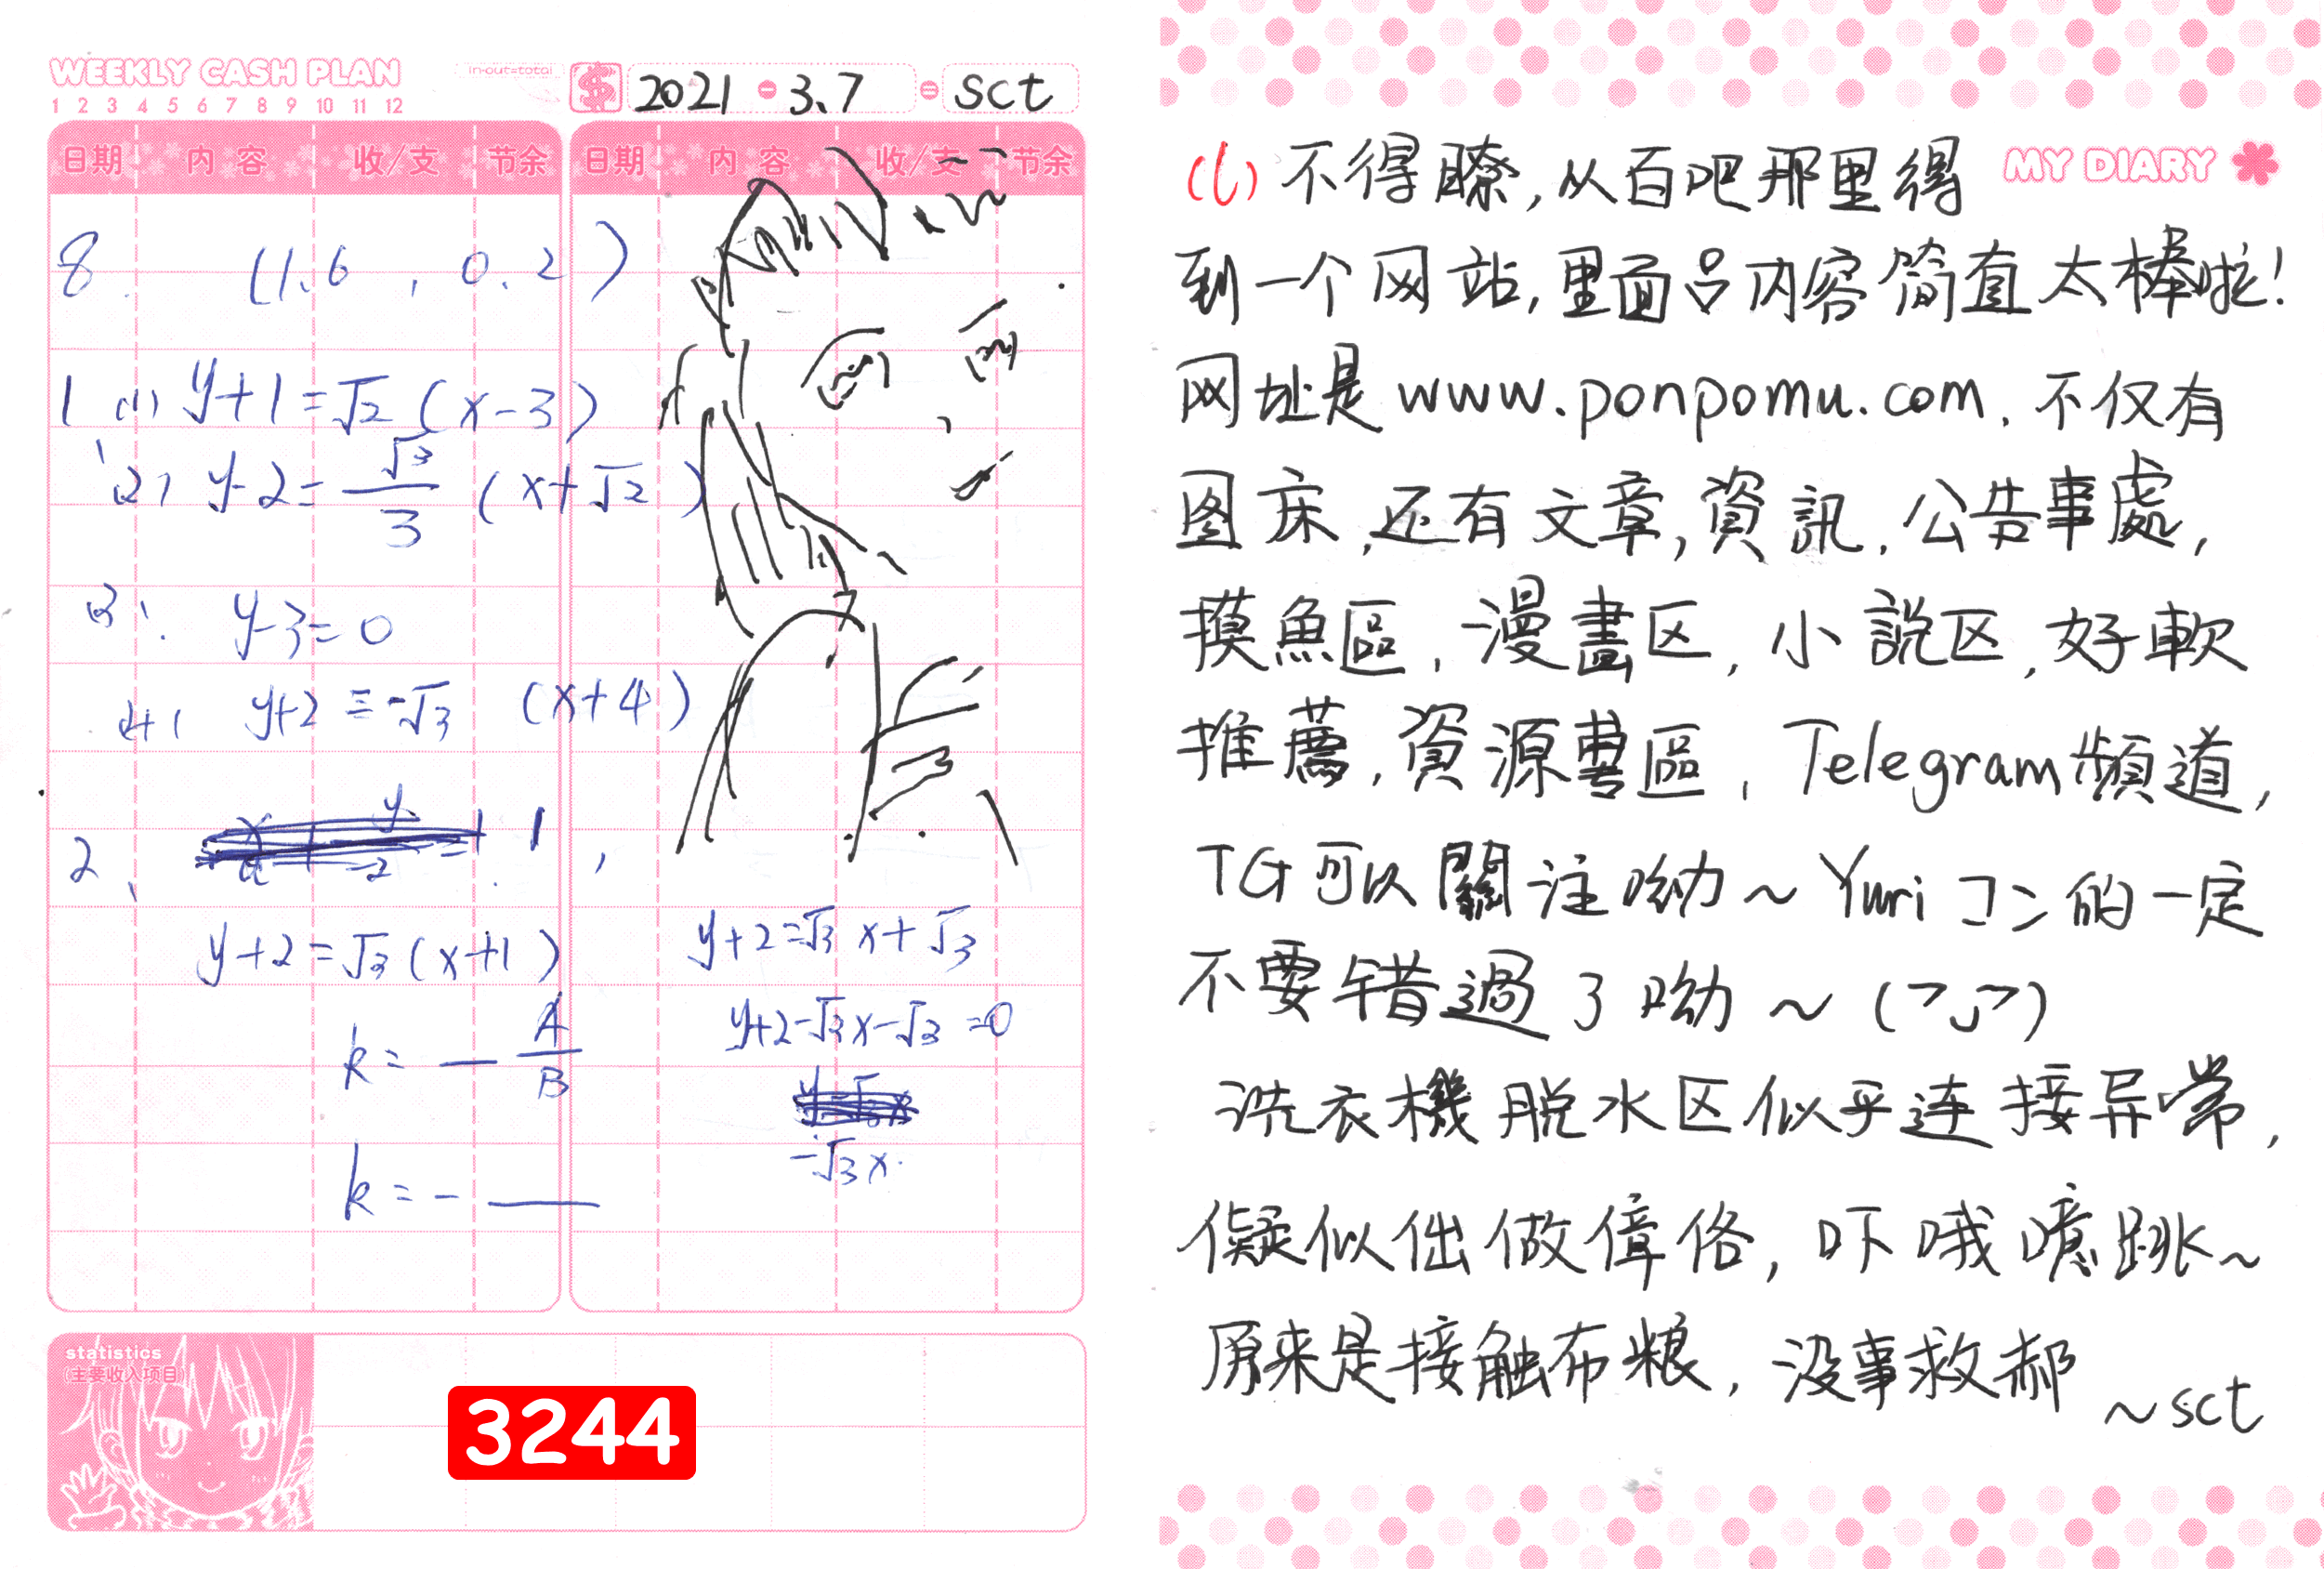 WEEKLY CASH PLAN
1 2 3 4 5 6 7 8 9 10 11 12
in-out=total
$ 2021 - 3.7 = sct
日期 内容 收/支 节余
日期 内容 收/支 节余
8. (1.6 , 0.2)
1 (1) y+1=√2 (x-3)
(2) y-2=√3/3 (x+√2)
(3) y-3=0
(4) y+2=-√3 (x+4)
2、
y+2=√3(x+1)
k=-A/B
k=-
y+2=√3x+√3
y+2-√3x-√3=0
-√3x
statistics
(主要收入项目)
3244
MY DIARY
(1)不得瞭,从百吧那里得
到一个网站,里面吕内容简直太棒啦!
网址是www.ponpomu.com.不仅有
图床,还有文章,資訊,公告事處,
摸魚區,漫畫区,小說区,好軟
推薦,資源專區,Telegram頻道,
TG可以關注呦~Yuriコン的一定
不要错過了呦~
洗衣機脱水区似乎连接异常,
儗似㑁做偉佫,吓哦噫跳~
原来是接触布粮,没事救郝
~sct